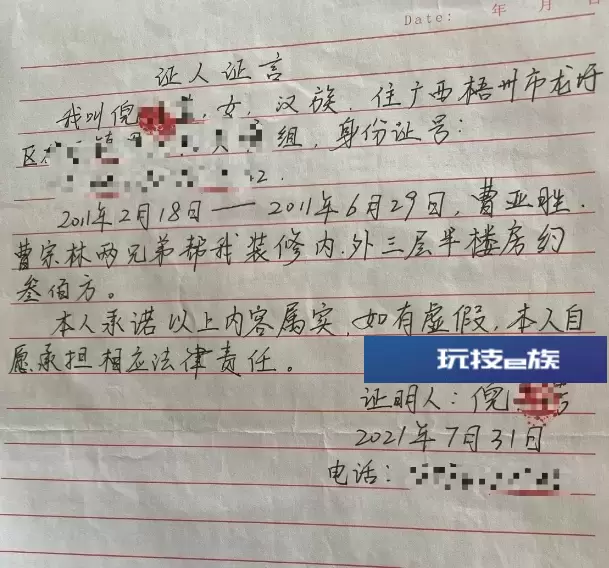 Date: 年 月 日
证人证言
我叫倪 女,汉族,住广西梧州市龙圩
区 组,身份证号:
2.
2011年2月18日——2011年6月29日,曹亚胜.
曹宗林两兄弟帮我装修内.外三层半楼房约
叁佰方。
本人承诺以上内容属实,如有虚假,本人自
愿承担相应法律责任。
玩技e族
证明人:倪
2021年7月31日
电话: